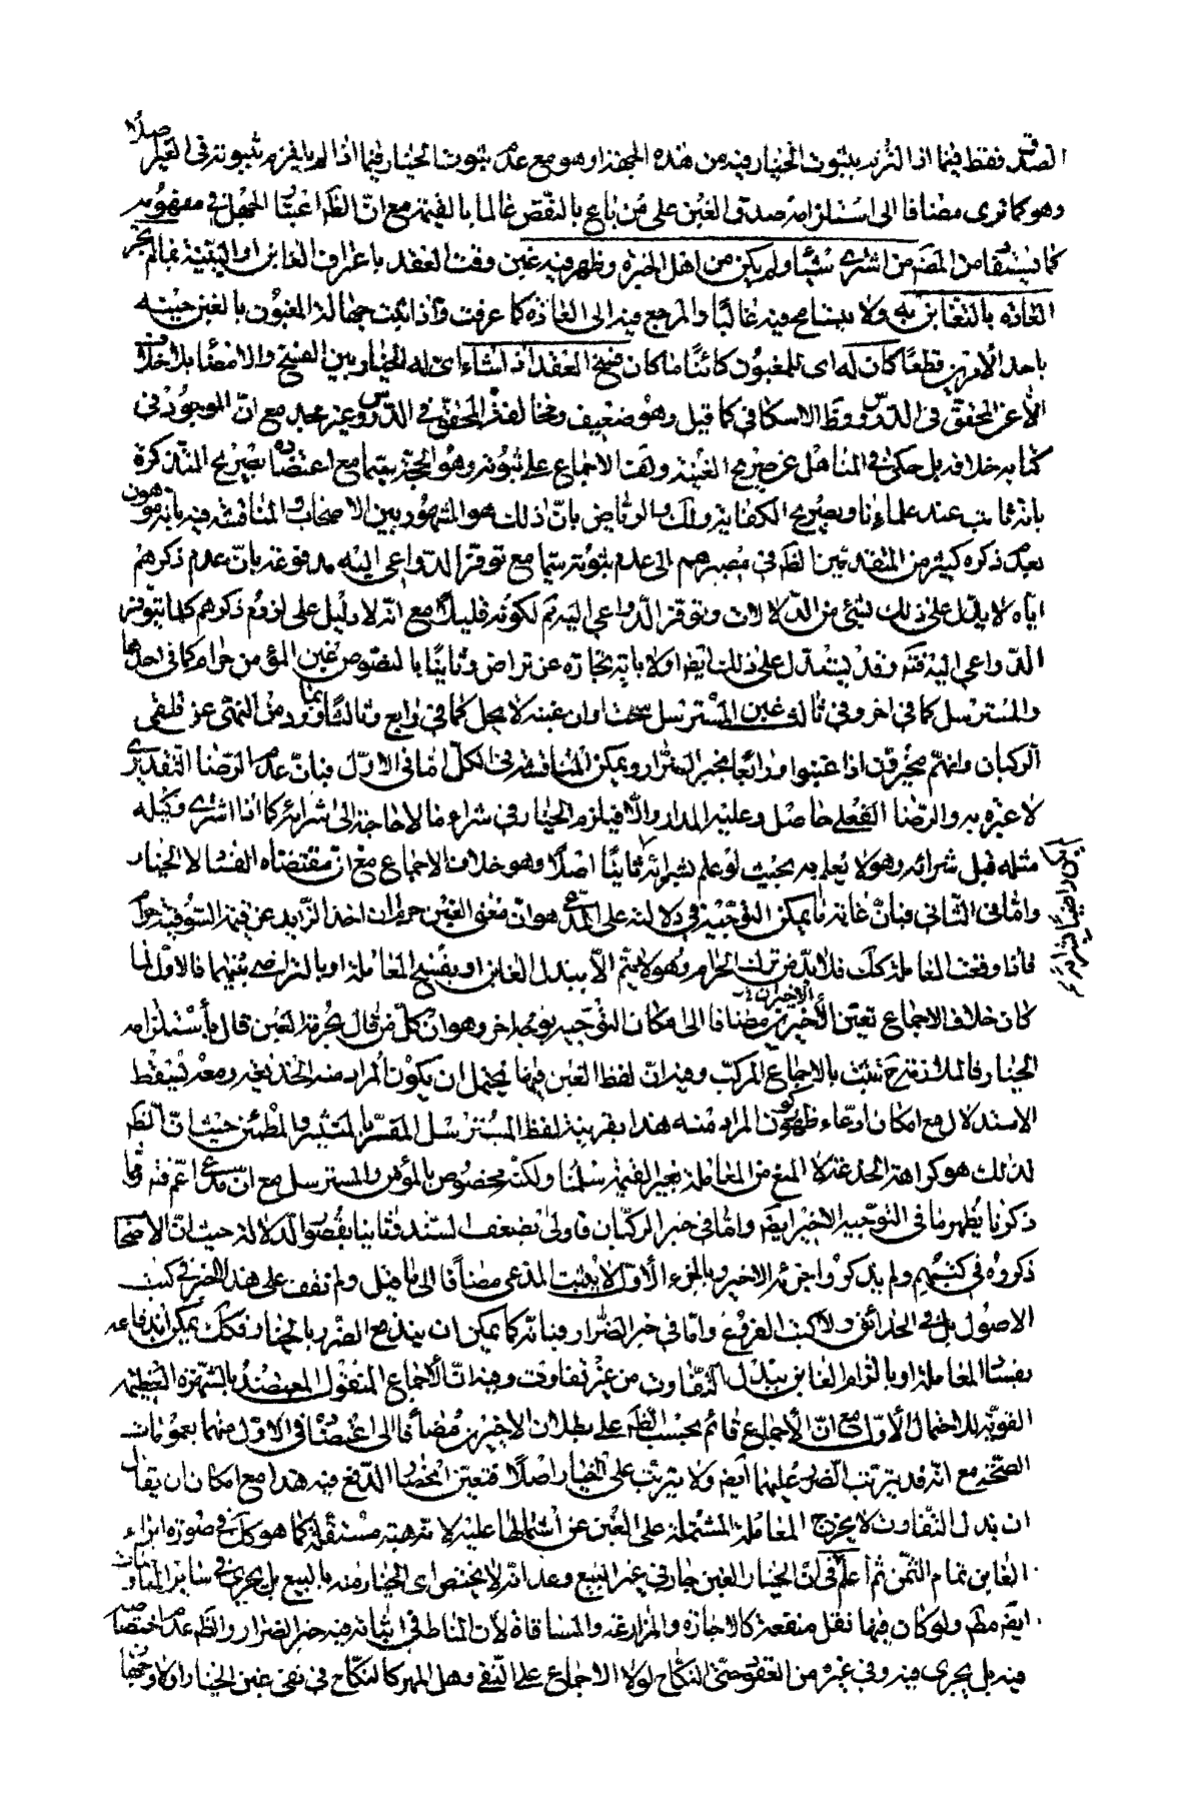 الصدق فقط فيما اذا التزنيد بثبوت الخيار فيه من هذه الجهة اه وهو مع عدم ثبوت الخيار فيما اذا لم يا في ثبوته في الغير اصلا
وهو كما ترى مضافا الى استلزامه صدق الغبن على من باع بالنقص غالما بالقيمة مع ان الظ اعتبار الجهل في مفهومه
كما يستفا من المصَ من اشترى شيئا ولم يكن من اهل الخبرة وظهر فيه غبن وقت العقد باعتراف الغابن او البينة بما لم تجر
العادة بالتغابن به ولا يتسامح فيه غالبا والمرجع فيه الى العادة كما عرفت واذا ثبت جهالة المغبون بالغبن حينئذ
باحد الامرين قطعا كان له اى للمغبون كائنا ما كان فسخ العقد اذا شاء اى له الخيار بين الفسخ والامضاء بلا خلاف
الا عن المحقق في الدروس وظ الاسكافي كما قيل وهو ضعيف ومخالفة المحقق في الدروس وغير مجد مع ان الموجود في
كتابه خلافه بل حكى في المناهل عن صريح الغنية ولف الاجماع على ثبوته وهو الحجة سيما مع اعتضاده بصريح التذكرة
بانه ثابت عند علماءنا وبصريح الكفاية ولك والرياض بان ذلك هو المشهور بين الاصحاب والمناقشة فيه بانه موهون
بعدم ذكره كثير من المتقدمين الظ في مصيرهم الى عدم ثبوته سيما مع توفر الدواعي اليه مدفوعة بان عدم ذكرهم
اياه لا يدل على ذلك بشئ من الدلالات وتوفر الدواعي اليه ثم لكونه قليلا مع انه لا دليل على لزوم ذكرهم كلما يتوفر
الدواعي اليه فتم وقد يستدل على ذلك ايضا اولا بآية تجارة عن تراض وثانيا بالنصوص غبن المؤمن حرام كما في احدها
والمسترسل كما في اخر وفي ثالث غبن المسترسل سحت او ان غبنه لا يحل كما في رابع وثالثا بما ورد من النهى عن تلقى
الركبان وانهم مخيرون اذا غبنوا ورابعا بخبر الضرار ويمكن المناقشة في الكل اما في الاول فبان عدم الرضا التقديرى
لا عبرة به والرضا الفعلى حاصل وعليه المدار والا فيلزم الخيار في شراء ما لا حاجة الى شرائه كما اذا اشترى وكيله
مثله قبل شرائه وهو لا يعلم به بحيث لو علم لم يكن راضيا بشرائه ثانيا اصلا وهو خلاف الاجماع مع ان مقتضاه الفساد لا الخيار
واما في الثاني فبان غاية ما يمكن التوجيه في دلالته على المدعى هو ان معنى الغبن حرام ان اخذ الزايد عن قيمة السوقية حرام
فاذا وقعت المعاملة كك فلا بد من ترك الحرام وهو لا يتم الا ببذل الغابن او بفسخ المعاملة او بالتراضي بينهما فالاول لما
كان خلاف الاجماع تعين الاخيران مضافا الى امكان التوجيه بوجه اخر وهو ان كل من قال بحرمة الغبن قال باستلزامه
الخيار فالملازمة ح تثبت بالاجماع المركب وفيه ان لفظ الغبن فيها يحتمل ان يكون المراد منه الخديعة ومعه فيسقط
الاستدلال مع امكان ادعاء ظهور كون المراد منه هذا بقرينة لفظ المسترسل المفسر بالمستشير والمطمئن حيث ان الظ
لذلك هو كراهة الخدعة لا المنع من المعاملة بغير القيمة سلمنا ولكنه مخصوص بالمؤمن والمسترسل مع ان المدعى اعم فتم ومما
ذكرنا يظهر ما في التوجيه الاخير ايضا واما في خبر الركبان فاولا بضعف السند وثانيا بقصور الدلالة حيث ان الاصحاب
ذكروه في كتبهم ولم يذكروا جزئه الاخير وبالجزء الاول لا يثبت المدعى مضافا الى ما قيل ولم نقف على هذا الخبر في كتب
الاصول بل في الحدائق ولا كتب الفروع واما في خبر الضرار فبانه كما يمكن ان يندفع الضرر بالخيار فكك يمكن اندفاعه
بفساد المعاملة او بالزام الغابن ببذل التفاوت من غير تفاوت وفيه ان الاجماع المنقول المعتضد بالشهرة العظيمة
القوية للاحتمال الاول مع ان الاجماع قائم بحسب الظ على بطلان الاخيرين مضافا الى اعتضا في الاول منهما بعمومات
الصحة مع انه قد يترتب الضرر عليهما ايضا ولا يترتب على الخيار اصلا فتعين انحصار الدفع فيه هذا مع امكان ان يقال
ان بذل التفاوت لا يخرج المعاملة المشتملة على الغبن عن اشتمالها عليه لانه هبة مستقلة كما هو كك في صورة ابراء
الغابن تمام الثمن ثم اعلم ان الخيار الغبن جار في غير المبيع وعد انه لا يختص اى الخيار منه بالبيع بل يجرى في سائر المعاوضات
ايضا مط ولو كان فيها نقل منفعة كالاجارة والمزارعة والمساقاة لان المناط في اثباته فيه خبر الضرار والظ عدم اختصاصه
فيه بل يجرى فيه وفي غيره من العقود حتى النكاح لولا الاجماع على النفى وهل المهر كالنكاح في نفى غبن الخيار اولا وجها